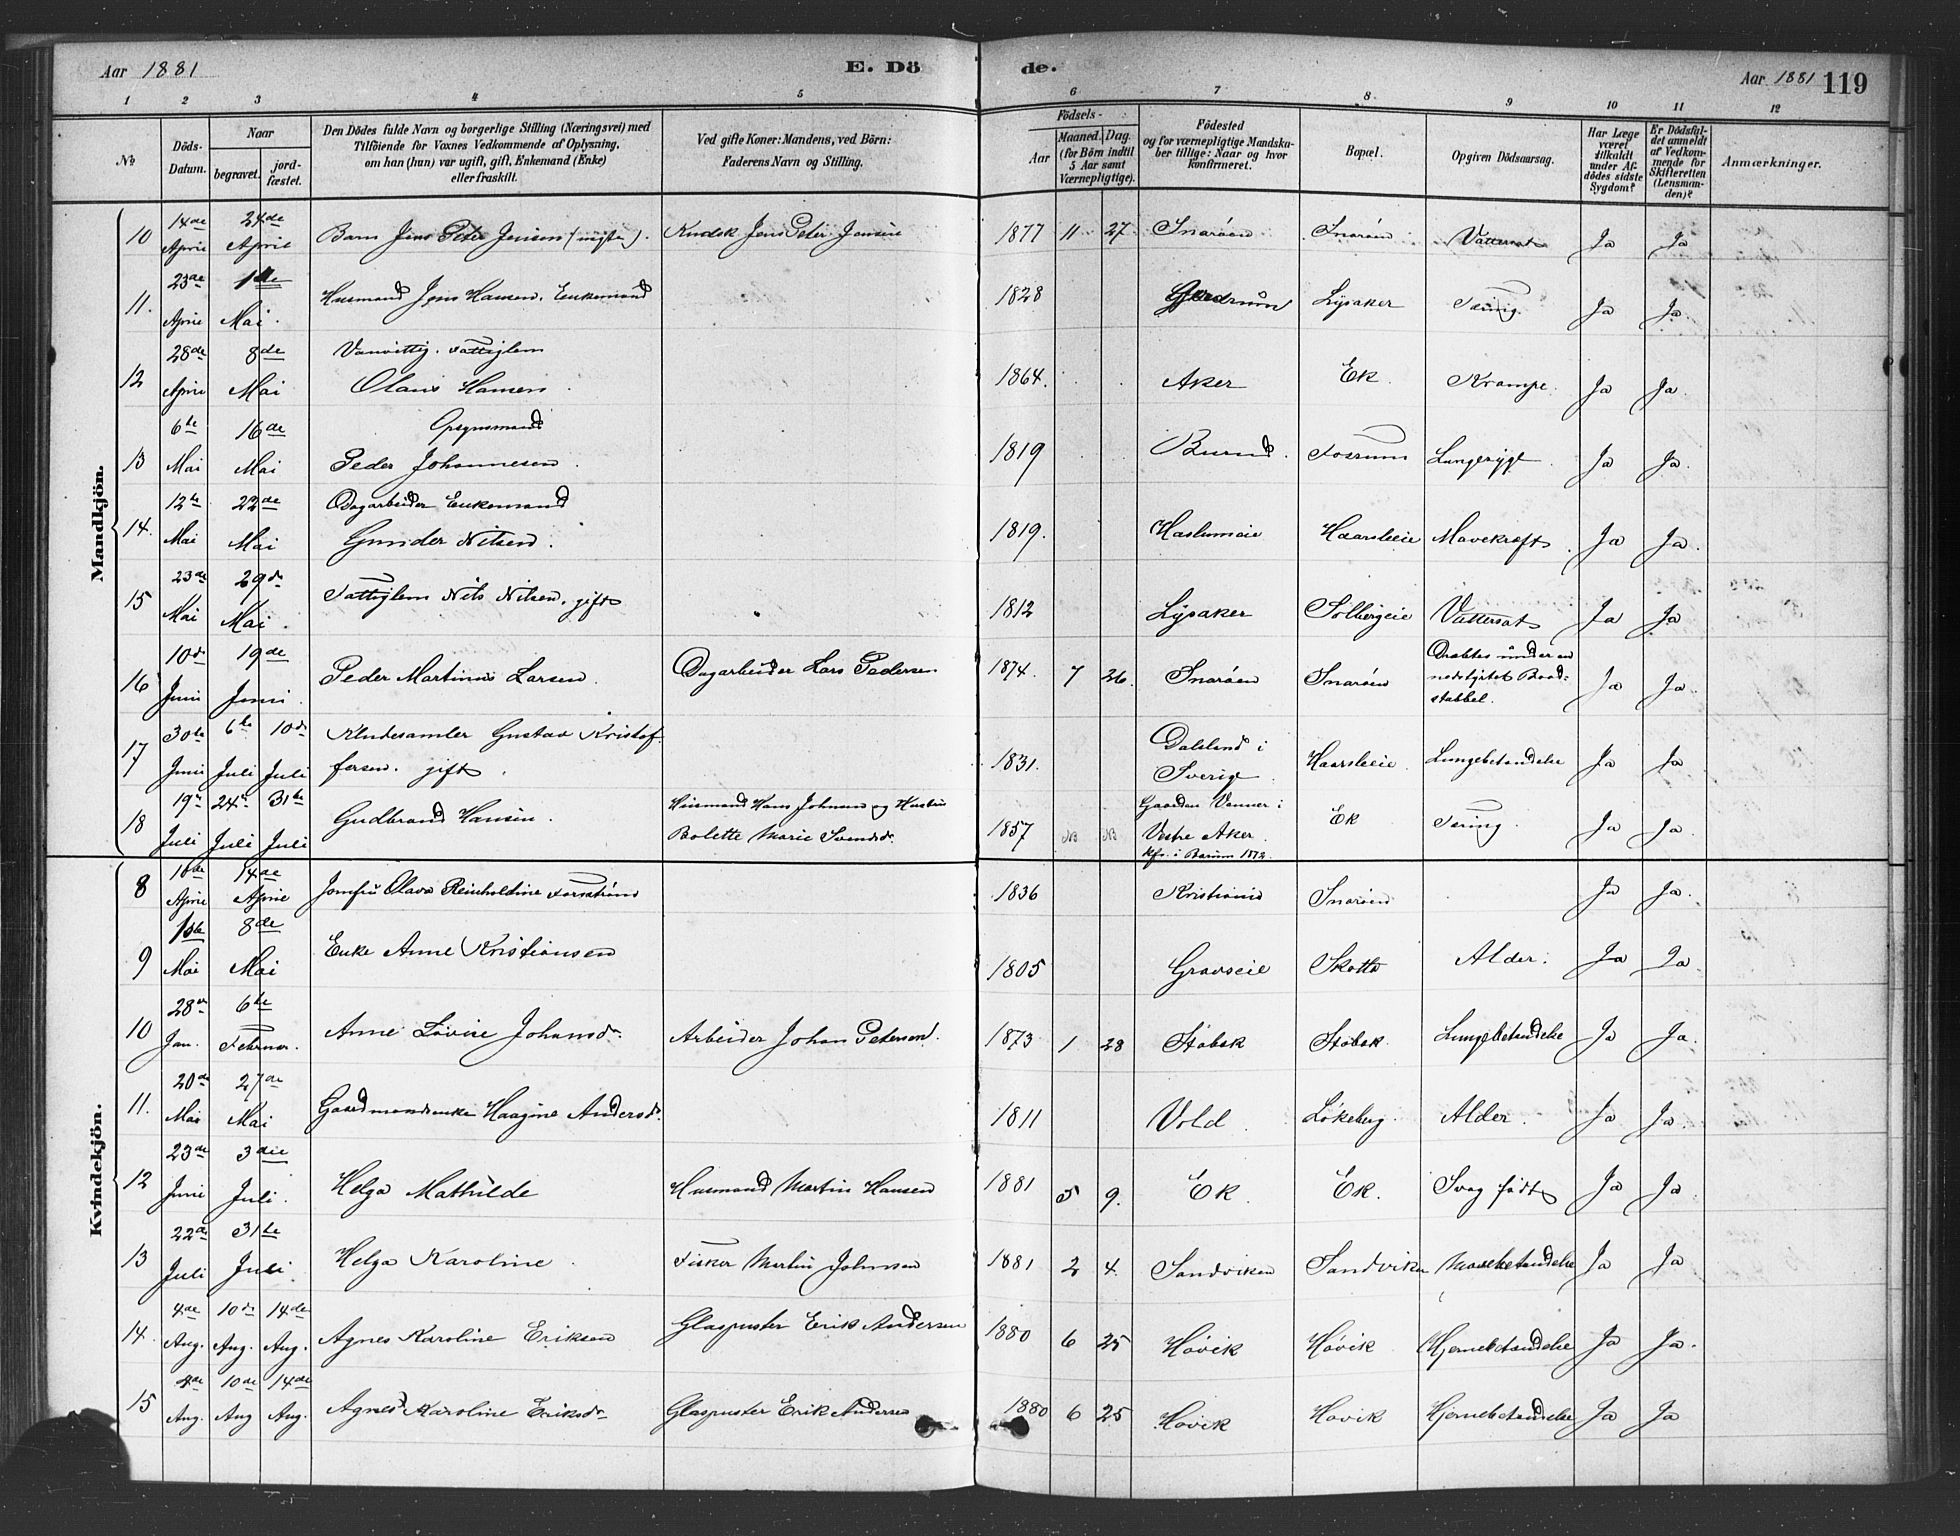 Aar 1881
E. Dö
de.
Aar 1881 119
1 2 3 4 5 6 7 8 9 10 11 12
No
Döds-Datum.
Naar
begravet.
jord-fæstet.
Den Dödes fulde Navn og borgerlige Stilling (Næringsvei) med
Tilföiende for Voxnes Vedkommende af Oplysning,
om han (hun) var ugift, gift, Enkemand (Enke)
eller fraskilt.
Ved gifte Koner: Mandens, ved Börn:
Faderens Navn og Stilling.
Födsels-
Aar
Maaned. Dag.
(for Börn indtil 5 Aar samt Værnepligtige).
Födested
og for værnepligtige Mandskaber tillige: Naar og hvor konfirmeret.
Bopæl.
Opgiven Dödsaarsag.
Har Læge været tilkaldt under Afdödes sidste Sygdom?
Er Dödsfaldet anmeldt af Vedkommende for Skifteretten (Lensmanden)?
Anmærkninger.
Mandkjön.
10 14de April 24de April Barn Jens Peter Jensen Jens Peter Jensen 1877 11 27 Snaröen Snaröen Vattersot Ja Ja
11. 23de April 1ste Mai. Husmand Jens Hansen. Enkemand 1828 Gjerdrum Lysaker Tæring. Ja Ja.
12 28de April 8de Mai Vanvittig. Fattiglem
Olaus Hansen 1864. Aker Ek. Krampe. Ja Ja.
13 6te Mai 16de Mai
Peder Johannesen 1819 Burud Tossrum Lungesyge. Ja Ja.
14. 12te Mai 22de Mai Dagarbeider Enkemand
Gunder Nilsen. 1819. Haslumeie Haarsleie Mavekræft. Ja Ja.
15 23de Mai 29de Mai. Fattiglem Nils Nilsen. gift 1812 Lysaker Solbergeie Vattersot Ja Ja
16 10de Juni 19de Juni. Peder Martinus Larsen. Dagarbeider Lars Pedersen 1874. 7 26. Snaröen Snaröen Dræbtes under en
nedstyrtet Bord-
stabbel. Ja Ja.
17 30te Juni 6te Juli 10de Juli Kludesamler Gustav Kristof
fersen. gift. 1831. Dalsland i
Sverige. Haarsleie. Lungebetændelse Ja Ja
18 19de Juli 24de Juli 31te Juli Gudbrand Hansen. Husmand Hans Johnsen og Hustru
Bolette Marie Svendsdr. 1857 NB NB Gaarden Venner i
Vestre Aker.
Kfr. i Bærum 1872. Ek Tæring. Ja Ja.
Kvindekjön.
8 April 14de April Jomfru Olava Reinholdine 1836 Kristiania Snaröen Ja Ja.
9 1ste Mai 8de Mai Enke Anne Kristiansen 1805 Gravseie Skotta Alder. Ja Ja
10 28de Jan. 6te Februar. Anne Lovise Johansdr. Arbeider Johan Petersen. 1873 1 28 Stabæk Stabæk. Lungebetændelse Ja Ja.
11. 20de Mai 27de Mai Gaardmandsenke Haagine Andersdr. 1811 Vold. Lökeberg. Alder. Ja Ja.
12 23de Juni 3die Juli. Helga Mathilde Husmand Martin Hansen 1881 5 9. Ek. Ek. Svag födt Ja Ja.
13 22de Juli 31te Juli. Helga Karoline. Fisker Martin Johnsen 1881 2 4. Sandviken Sandviken Mavebetændelse Ja Ja
14. 4de Aug. 10de Aug. 14de Aug. Agnes Karoline Eriksen Glaspuster Erik Andersen 1880 6 25 Hövik Hövik Hjernebetændelse Ja Ja.
15 4de Aug. 10de Aug 14de Aug. Agnes Karoline Eriksdr Glaspuster Erik Andersen 1880 6 25 Hövik Hovik Hjernebetændelse Ja Ja